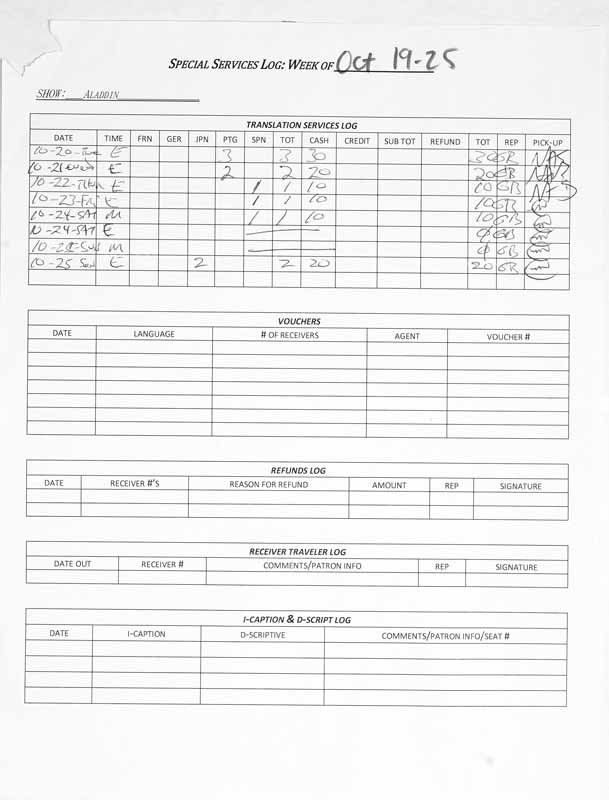 SPECIAL SERVICES LOG: WEEK OF Oct 19-25
SHOW: ALADDIN
TRANSLATION SERVICES LOG
DATE TIME FRN GER JPN PTG SPN TOT CASH CREDIT SUB TOT REFUND TOT REP PICK-UP
10-20-Tue E 3 3 30 30 GR
10-21 E 2 2 20 20 GR
10-22-Thu E 1 1 10 10 GR
10-23-Fri E 1 1 10 10 GR
10-24-SAT M 1 1 10 10 GR
10-24-SAT E GR
M GR
10-25 Sun E 2 2 20 20 GR
VOUCHERS
DATE LANGUAGE # OF RECEIVERS AGENT VOUCHER #
REFUNDS LOG
DATE RECEIVER #'S REASON FOR REFUND AMOUNT REP SIGNATURE
RECEIVER TRAVELER LOG
DATE OUT RECEIVER # COMMENTS/PATRON INFO REP SIGNATURE
I-CAPTION & D-SCRIPT LOG
DATE I-CAPTION D-SCRIPTIVE COMMENTS/PATRON INFO/SEAT #